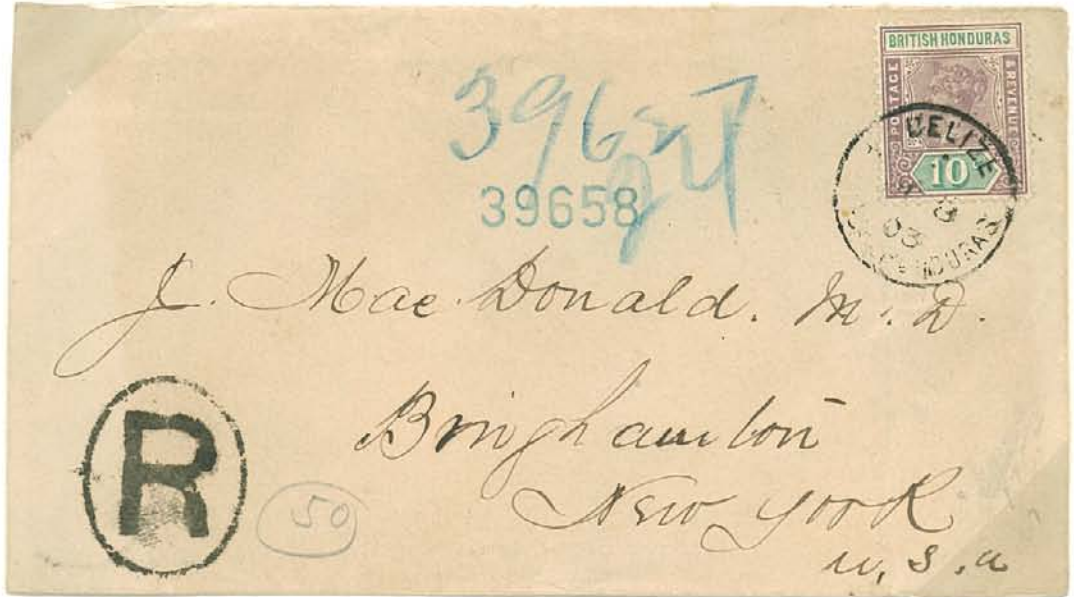 BRITISH HONDURAS
POSTAGE & REVENUE
10
BELIZE
03
39658
J. Mac Donald. M. D.
Binghamton
New York
U. S. A
R
50